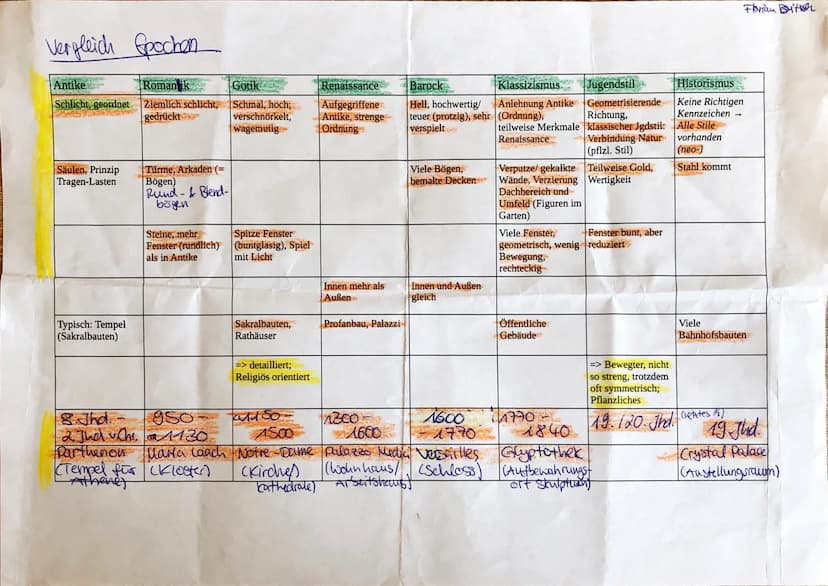 Florian
Vergleich Epochen
Antike
Romanik
Gotik
Renaissance
Barock
Klassizismus
Jugendstil
Historismus
Schlicht, geordnet
Ziemlich schlicht,
gedrückt
Schmal, hoch;
verschnörkelt,
wagemutig
Aufgegriffene
Antike, strenge
Ordnung
Hell, hochwertig/
teuer (protzig), sehr
verspielt
Anlehnung Antike
(Ordnung),
teilweise Merkmale
Renaissance
Geometrisierende
Richtung,
klassischer Jgdstil:
Verbindung Natur
(pflzl. Stil)
Keine Richtigen
Kennzeichen →
Alle Stile
vorhanden
(neo-)
Säulen, Prinzip
Tragen-Lasten
Türme, Arkaden (=
Bögen)
Rund- & Blend-
bögen
Viele Bögen,
bemalte Decken
Verputze/ gekalkte
Wände, Verzierung
Dachbereich und
Umfeld (Figuren im
Garten)
Teilweise Gold,
Wertigkeit
Stahl kommt
Steine, mehr
Fenster (rundlich)
als in Antike
Spitze Fenster
(buntglasig), Spiel
mit Licht
Viele Fenster,
geometrisch, wenig
Bewegung,
rechteckig
Fenster bunt, aber
reduziert
Innen mehr als
Außen
Innen und Außen
gleich
Typisch: Tempel
(Sakralbauten)
Sakralbauten,
Rathäuser
Profanbau, Palazzi
Öffentliche
Gebäude
Viele
Bahnhofsbauten
=> detailliert;
Religiös orientiert
=> Bewegter, nicht
so streng, trotzdem
oft symmetrisch;
Pflanzliches
8. Jhd. -
2. Jhd v. Chr.
950 -
~1130
~1150 -
1500
1300 -
1600
1600
- 1770
1770 -
1840
19./20. Jhd.
(letztes ⅓)
19. Jhd.
Parthenon
(Tempel für
Athene)
Maria Laach
(Kloster)
Notre-Dame
(Kirche/
Kathedrale)
Palazzo Medici
(Wohnhaus/
Arbeitshaus)
Versailles
(Schloss)
Glyptothek
(Aufbewahrungs-
ort Skulpturen)
Crystal Palace
(Austellungsraum)